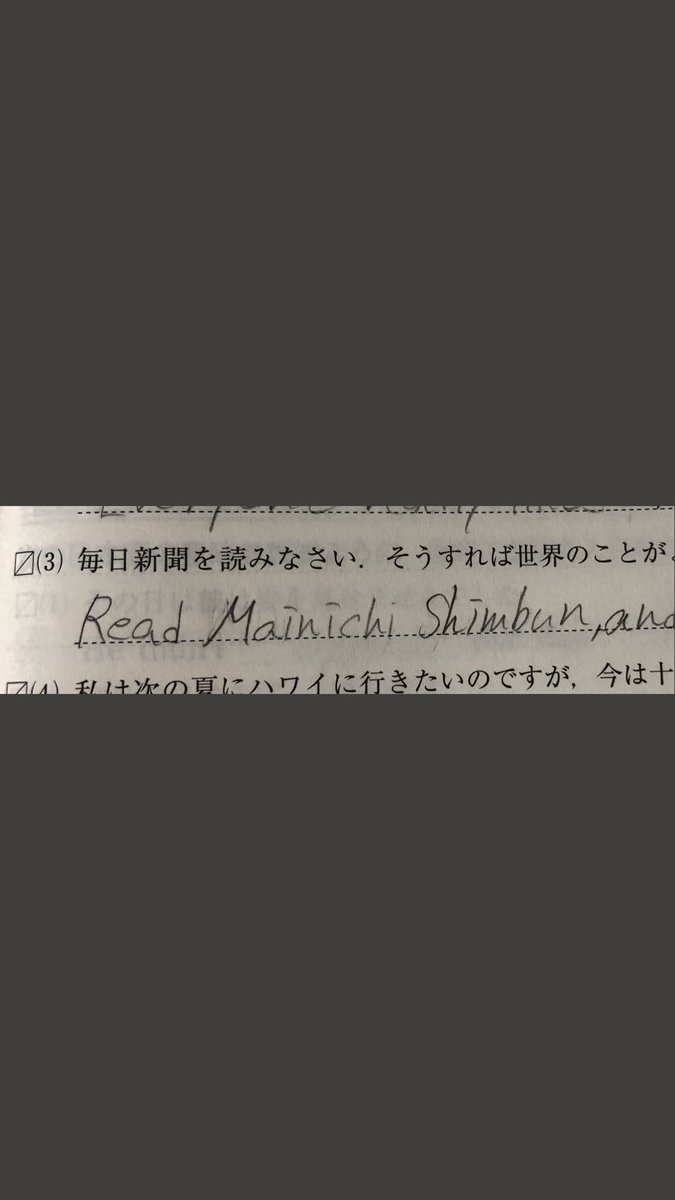 (3) 毎日新聞を読みなさい．そうすれば世界のことが
Read Mainichi Shimbun, and
(4) 私は次の夏にハワイに行きたいのですが，今は十